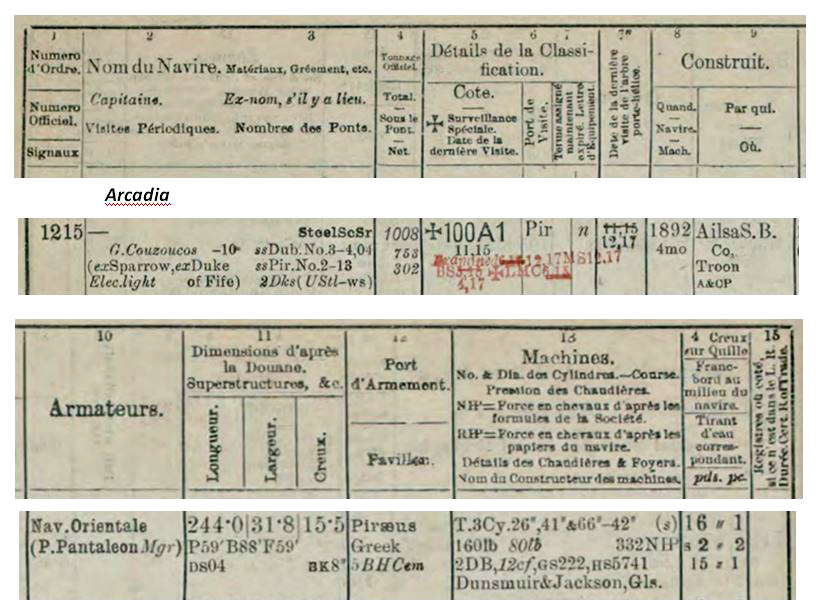 1 2 3 4 5 6 7 8 9
Numero d'Ordre. Nom du Navire. Matériaux, Gréement, etc. Tonnage Officiel. Détails de la Classification. Date de la dernière visite de l'arbre porte-hélice. Construit.
Numero Officiel. Capitaine. Ex-nom, s'il y a lieu. Total. Cote. Port de Visite. Terme assigné maintenant expiré. Lettre d'Équipement. Quand. Par qui.
Signaux Visites Périodiques. Nombres des Ponts. Sous le Pont. Net. ✠ Surveillance Spéciale. Date de la dernière Visite. Navire. Mach. Où.
Arcadia
1215 — SteelScSr 1008 ✠100A1 Pir n 11,15 1892 AilsaS.B.
G.Couzoucos –10 ssDub.No.3–4,04 753 11,15 12,17 4mo Co,
(exSparrow,exDuke ssPir.No.2–13 302 12,17MS12.17 Troon
Elec.light of Fife) 2Dks(UStl–ws) ✠LMC A&CP
4,17
10 11 13 4 15
Armateurs. Dimensions d'après la Douane. Superstructures, &c. Port d'Armement. Machines. Creux sur Quille
Longueur. Largeur. Creux. Pavillon. No. & Dia. des Cylindres.—Course.
Pression des Chaudières. Franc-bord au milieu du navire.
NHP=Force en chevaux d'après les formules de la Société.
RHP=Force en chevaux d'après les papiers du navire. Tirant d'eau correspondant.
Détails des Chaudières & Foyers.
Nom du Constructeur des machines. pds. pc.
Registres où coté, si ce n'est dans le L. R.
Nav.Orientale 244·0 31·8 15·5 Piræus T.3Cy.26",41"&66"–42" (s) 16 " 1
(P.Pantaleon Mgr) P59'B88'F59' Greek 160lb 80lb 332NHP s 2 " 2
DS04 BK8" 5BHCem 2DB,12cf,GS222,HS5741 15 " 1
Dunsmuir&Jackson,Gls.